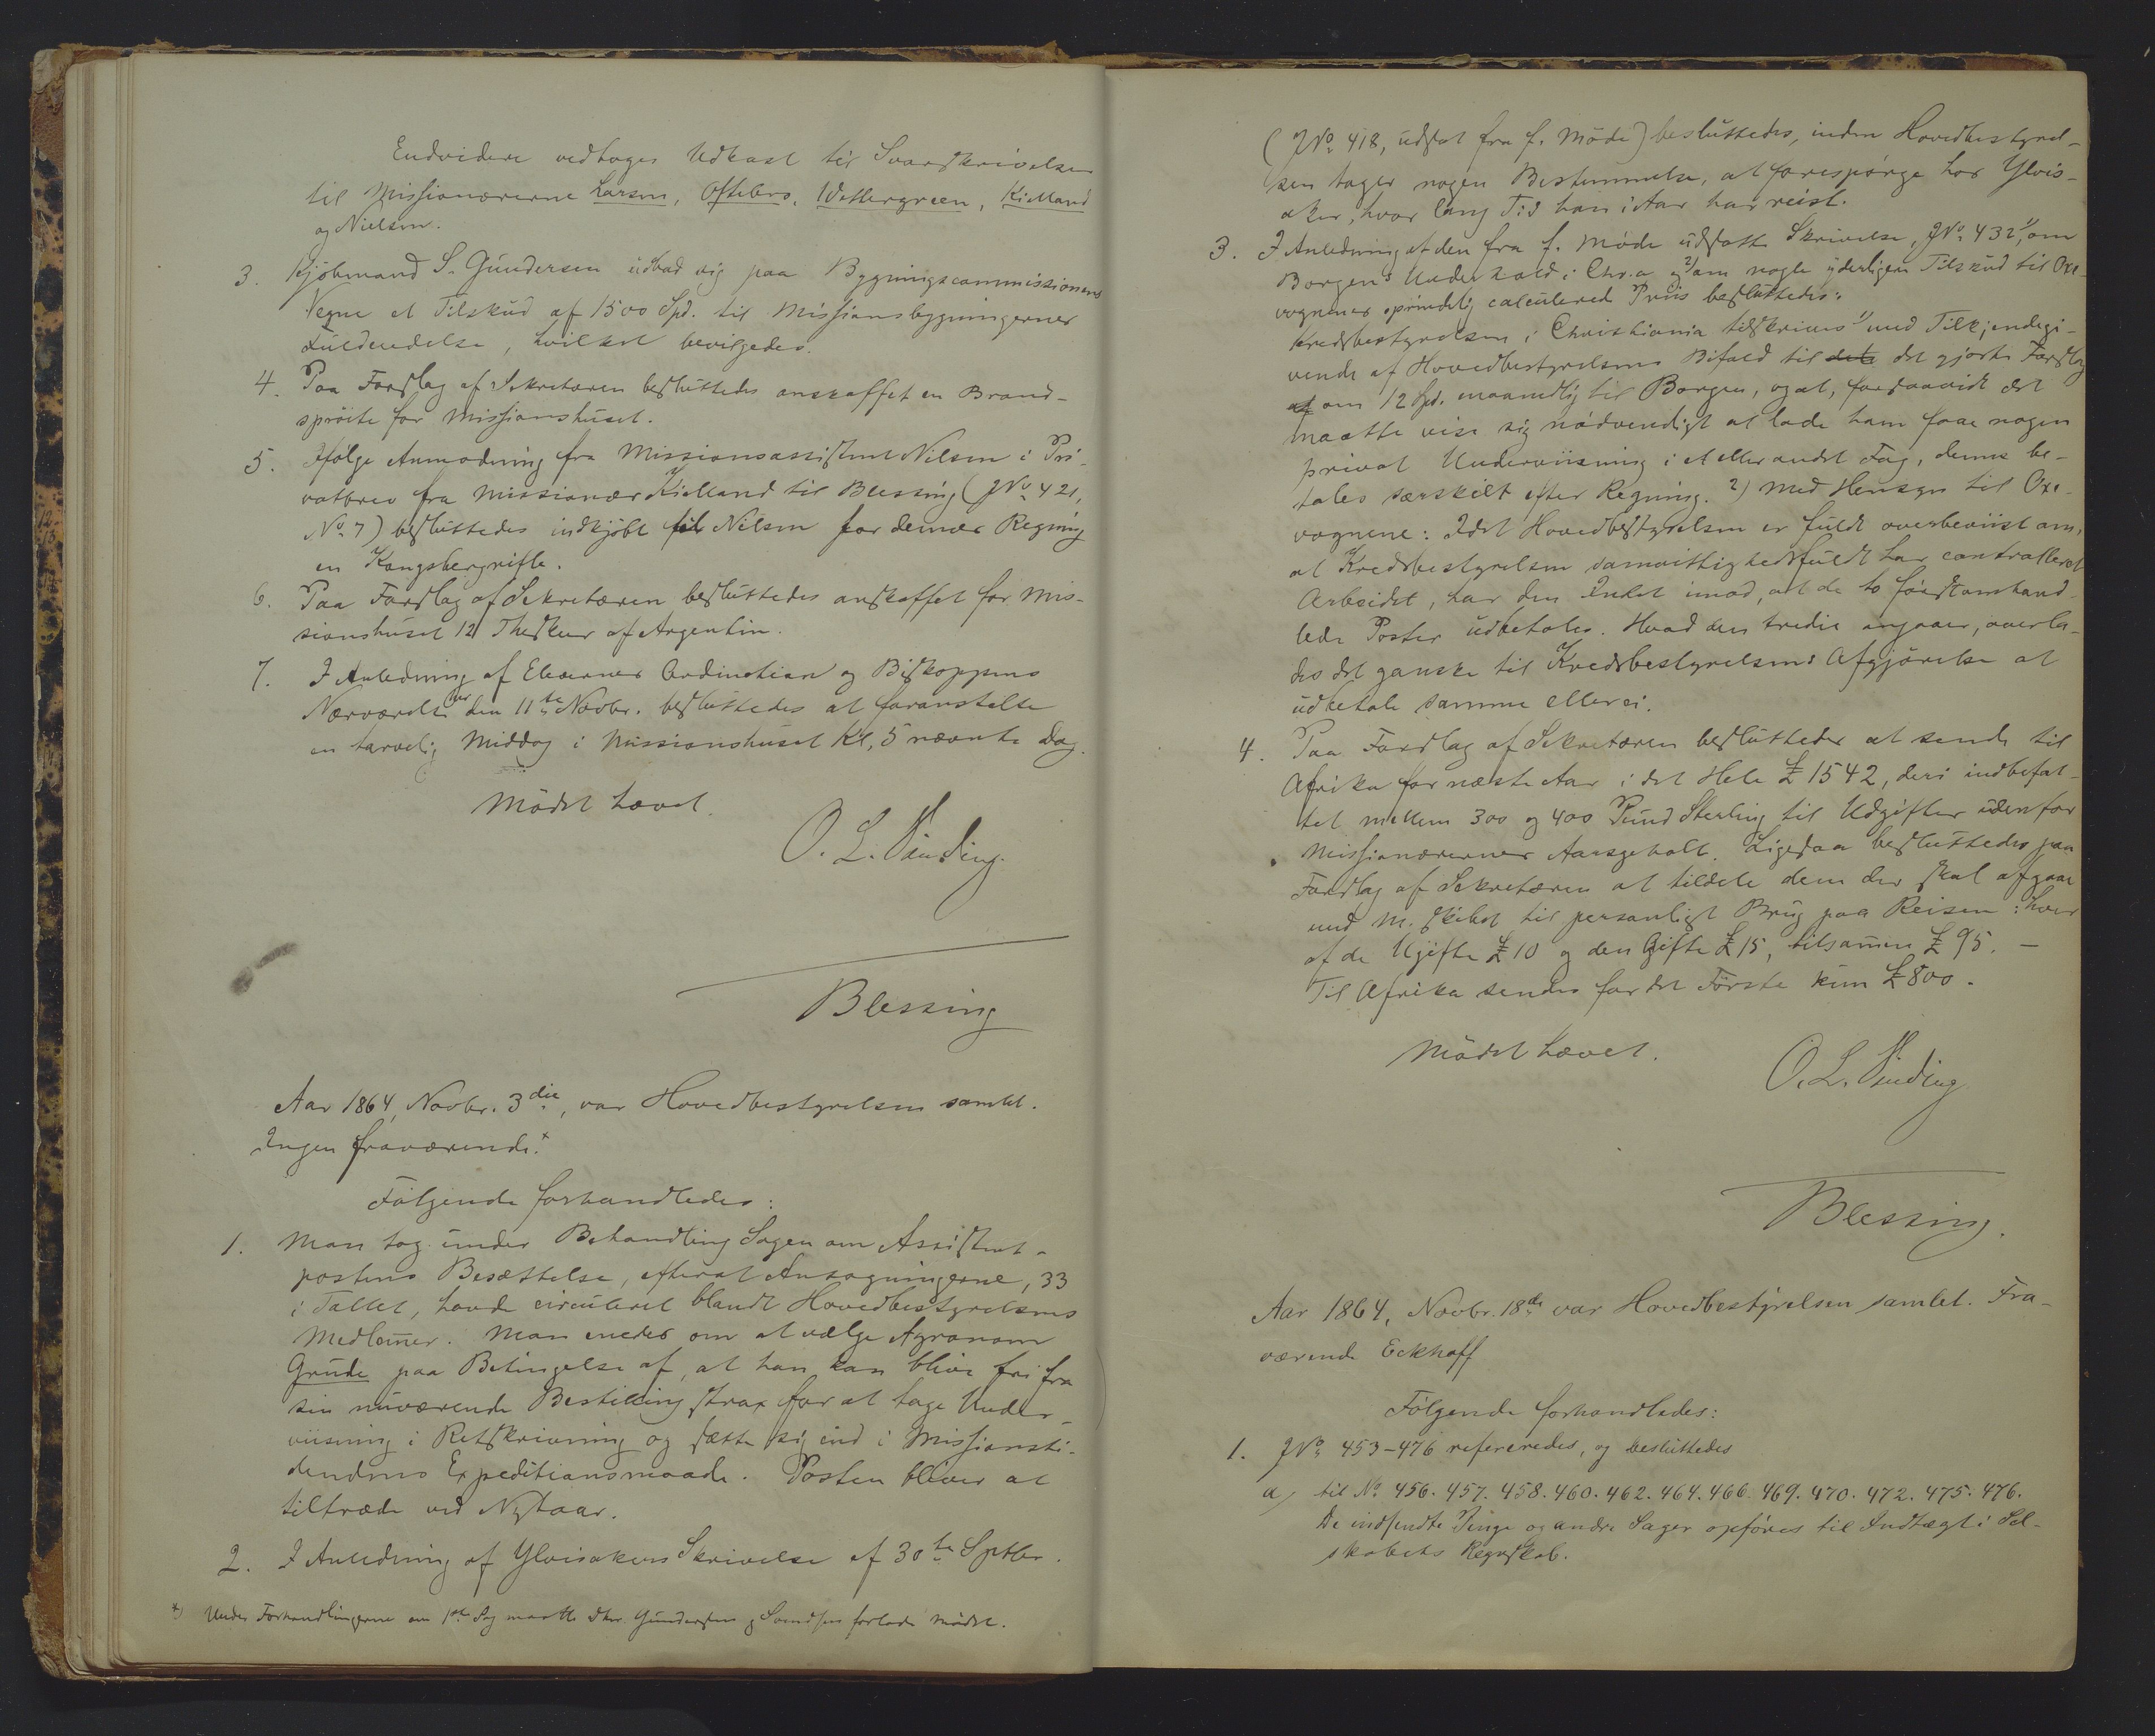 Endvidere vedtoges Udkast til Svarskrivelser
til Missionærerne Larsen, Oftebro, Wettergreen, Kielland
og Nielsen.
3. Kjøbmand S. Gundersen udbad sig paa Bygningscommissionens
Vegne et Tilskud af 1500 Spd. til Missionsbygningernes
Fuldendelse, hvilket bevilgedes.
4. Paa Forslag af Sekretæren besluttedes anskaffet en Brand-
sprøite for Missionshuset.
5. Ifølge Anmodning fra Missionsassistent Nilsen i Pri-
vatbrev fra Missionær Kielland til Blessing (JNo 421,
No 7) besluttedes indkjøbt til Nilsen for dennes Regning
en Kongsbergrifle.
6. Paa Forslag af Sekretæren besluttedes anskaffet for Mis-
sionshuset 12 Theskeer af Argentin.
7. I Anledning af Elevernes Ordination og Biskoppens
Nærværelse her den 11te Novbr. besluttedes at foranstalte
en tarvelig Middag i Missionshuset Kl. 5 nævnte Dag.
Mødet hævet.
O. L. Sinding.
Blessing
Aar 1864, Novbr. 3die, var Hovedbestyrelsen samlet.
Ingen fraværende.*
Følgende forhandledes:
1. Man tog under Behandling Sagen om Assistent-
postens Besættelse, efterat Ansøgningerne, 33
i Tallet, havde circuleret blandt Hovedbestyrelsens
Medlemer. Man enedes om at vælge Agronom
Grude paa Betingelse af, at han kan blive fri fra
sin nuværende Bestilling strax for at tage Under-
viisning i Retskrivning og sætte sig ind i Missionsti-
dendens Expeditionsmaade. Posten bliver at
tiltræde ved Nytaar.
2. I Anledning af Ylvisakers Skrivelse af 30te Septbr.
*) Under Forhandlingerne om 1ste Sag maatte Dhrr. Gundersen og Svendsen forlade Mødet.
(JNo 418, udsat fra f. Møde) besluttedes, inden Hovedbestyrel-
sen tager nogen Bestemmelse, at forespørge hos Ylvis-
aker, hvor lang Tid han i Aar har reist.
3. I Anledning af den fra f. Møde udsatte Skrivelse, JNo 432, 1) om
Borgens Underhold i Chr.a og 2) om nogle yderligere Tilskud til Oxe-
vognenes oprindelig calculered Priis besluttedes:
Kredsbestyrelsen i Christiania tilskrives 1) med Tilkjendegi-
vende af Hovedbestyrelsens Bifald til det gjorte Forslag
om 12 Spd. maanedlig til Borgen, og at, forsaavidt det
maatte vise sig nødvendigt at lade ham faae nogen
privat Underviisning i et eller andet Fag, denne be-
tales særskilt efter Regning. 2) Med Hensyn til Oxe-
vognene: Idet Hovedbestyrelsen er fuldt overbeviist om,
at Kredsbestyrelsen samvittighedsfuldt har controlleret
Arbeidet, har den Intet imod, at de to førstomhand-
lede Poster udbetales. Hvad den tredie angaaer, overla-
des det ganske til Kredsbestyrelsens Afgjørelse at
udbetale samme eller ei.
4. Paa Forslag af Sekretæren besluttedes at sende til
Afrika for næste Aar i det Hele £ 1542, deri indbefat-
tet mellem 300 og 400 Pund Sterling til Udgifter udenfor
Missionærernes Aarsgehalt. Ligesaa besluttedes paa
Forslag af Sekretæren at tildele dem der skal afgaae
med M. skibet til personligt Brug paa Reisen: hver
af de Ugifte £ 10 og den Gifte £ 15, tilsamen £ 95. —
Til Afrika sendes for det Første kun £ 800.
Mødet hævet.
O. L. Sinding
Blessing.
Aar 1864, Novbr. 18de var Hovedbestyrelsen samlet. Fra-
værende Eckhoff
Følgende forhandledes:
1. JNo 453-476 refereredes, og besluttedes
a) til No 456. 457. 458. 460. 462. 464. 466. 469. 470. 472. 475. 476.
De indsendte Penge og andre Sager opføres til Indtægt i Sel-
skabets Regnskab.